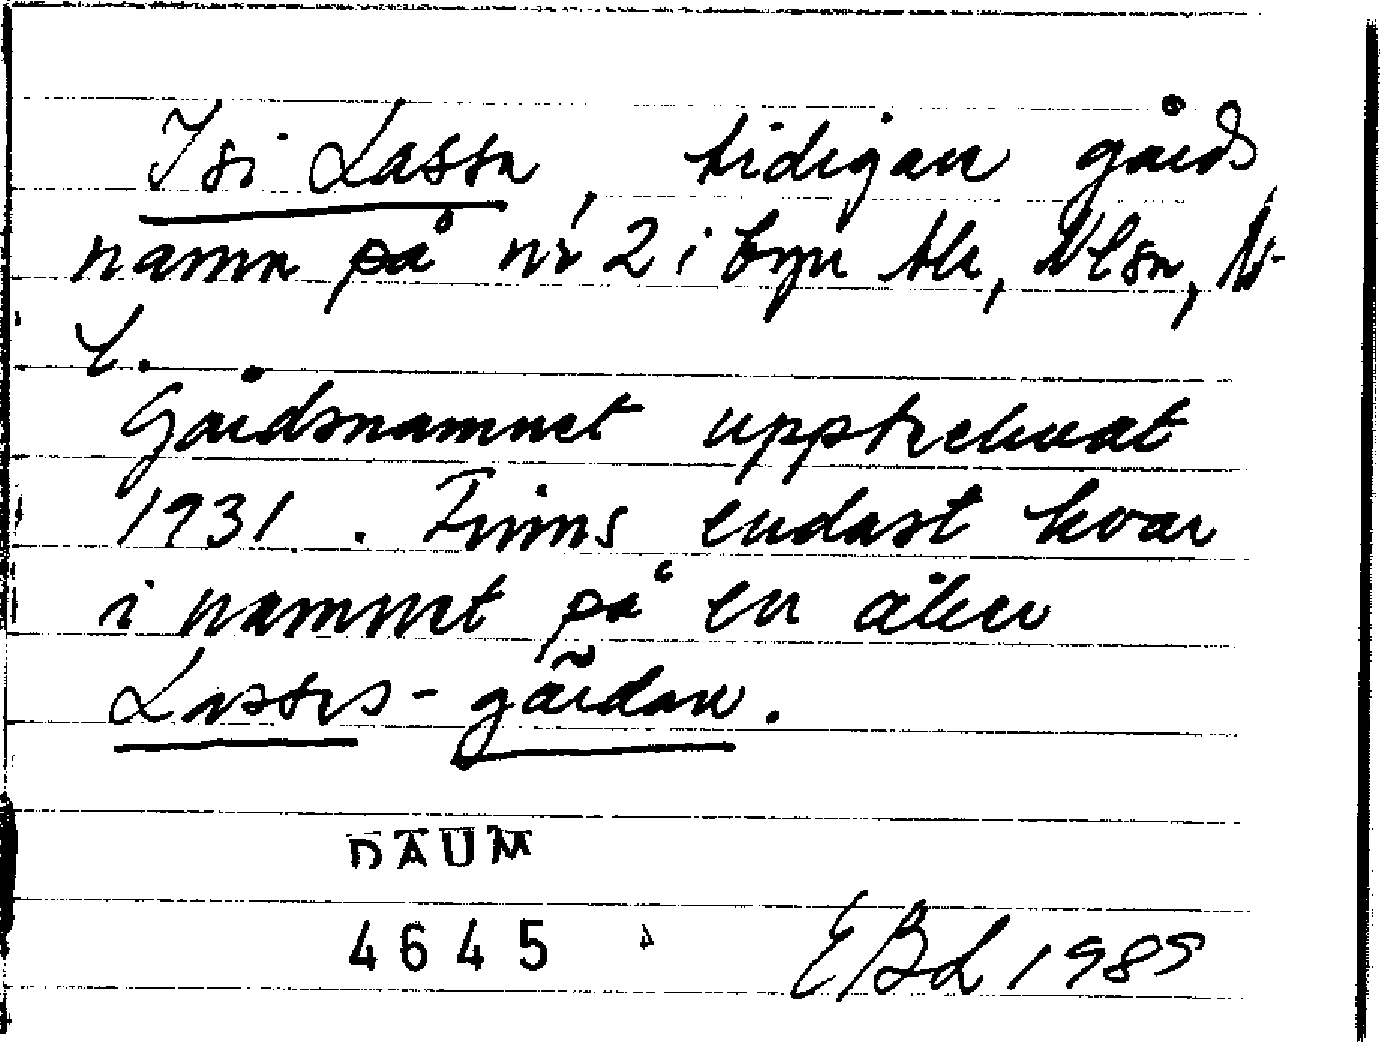 Isi Lassn, tidigare gårds
namn på nr 2 i byn
Gårdsnamnet upptecknat
1931. Finns endast kvar
i namnet på en åker
Lasses-gärdan.
DAUM
4645
EBL 1985